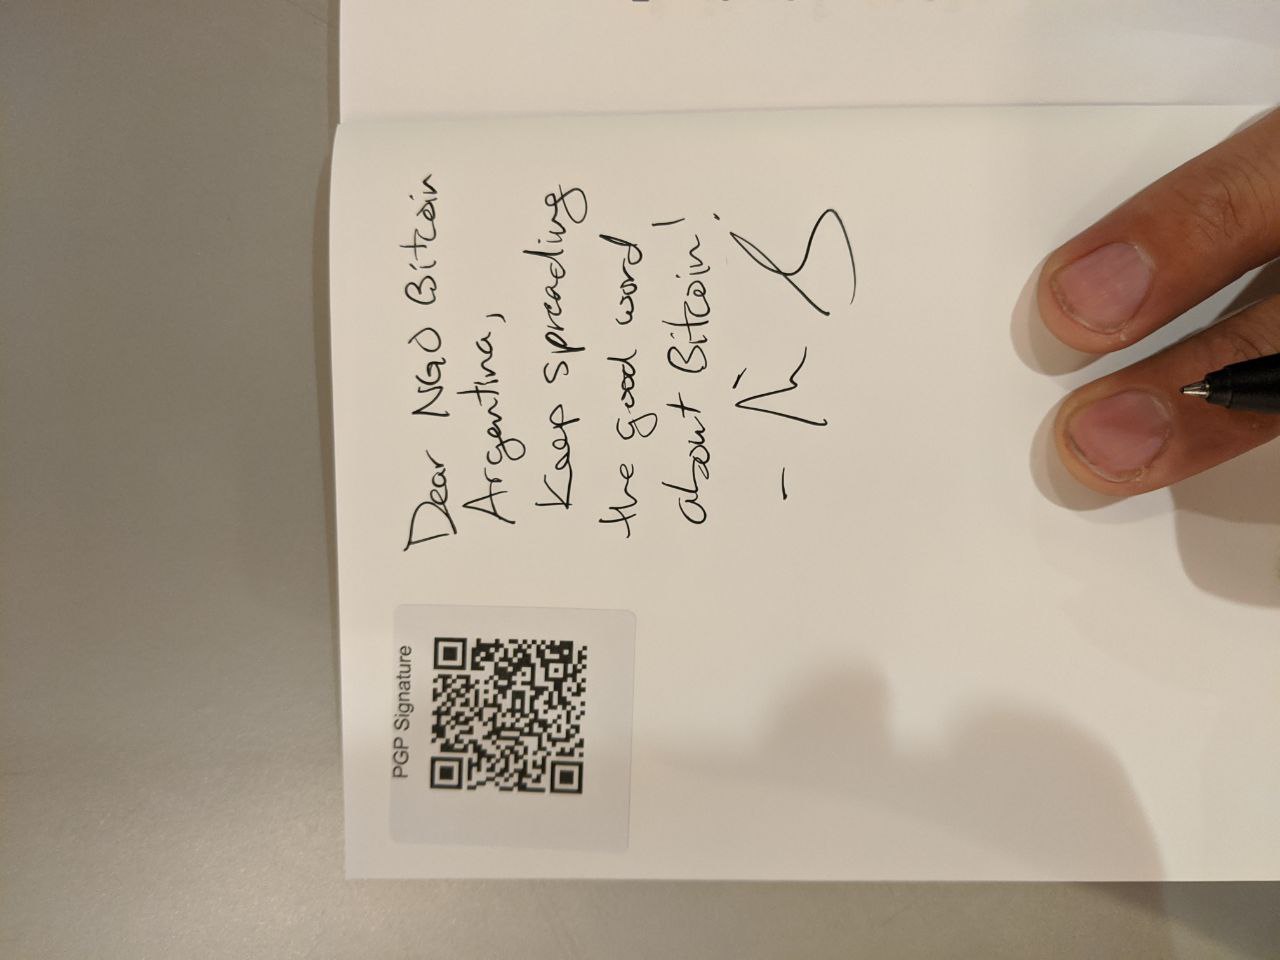 PGP Signature
Dear NGO Bitcoin
Argentina,
Keep spreading
the good word
about Bitcoin!